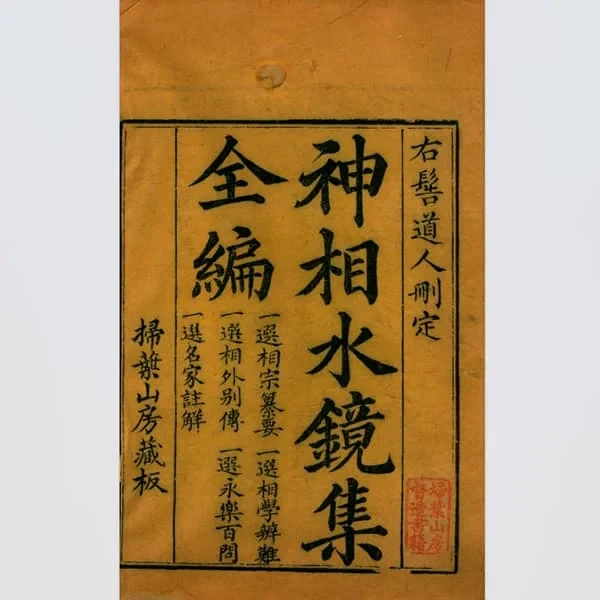 右髻道人刪定
神相水鏡集
全編
一選相宗纂要 一選相學辨難
一選相外別傳 一選永樂百問
一選名家註解
掃葉山房藏板
掃葉山房
督造書籍